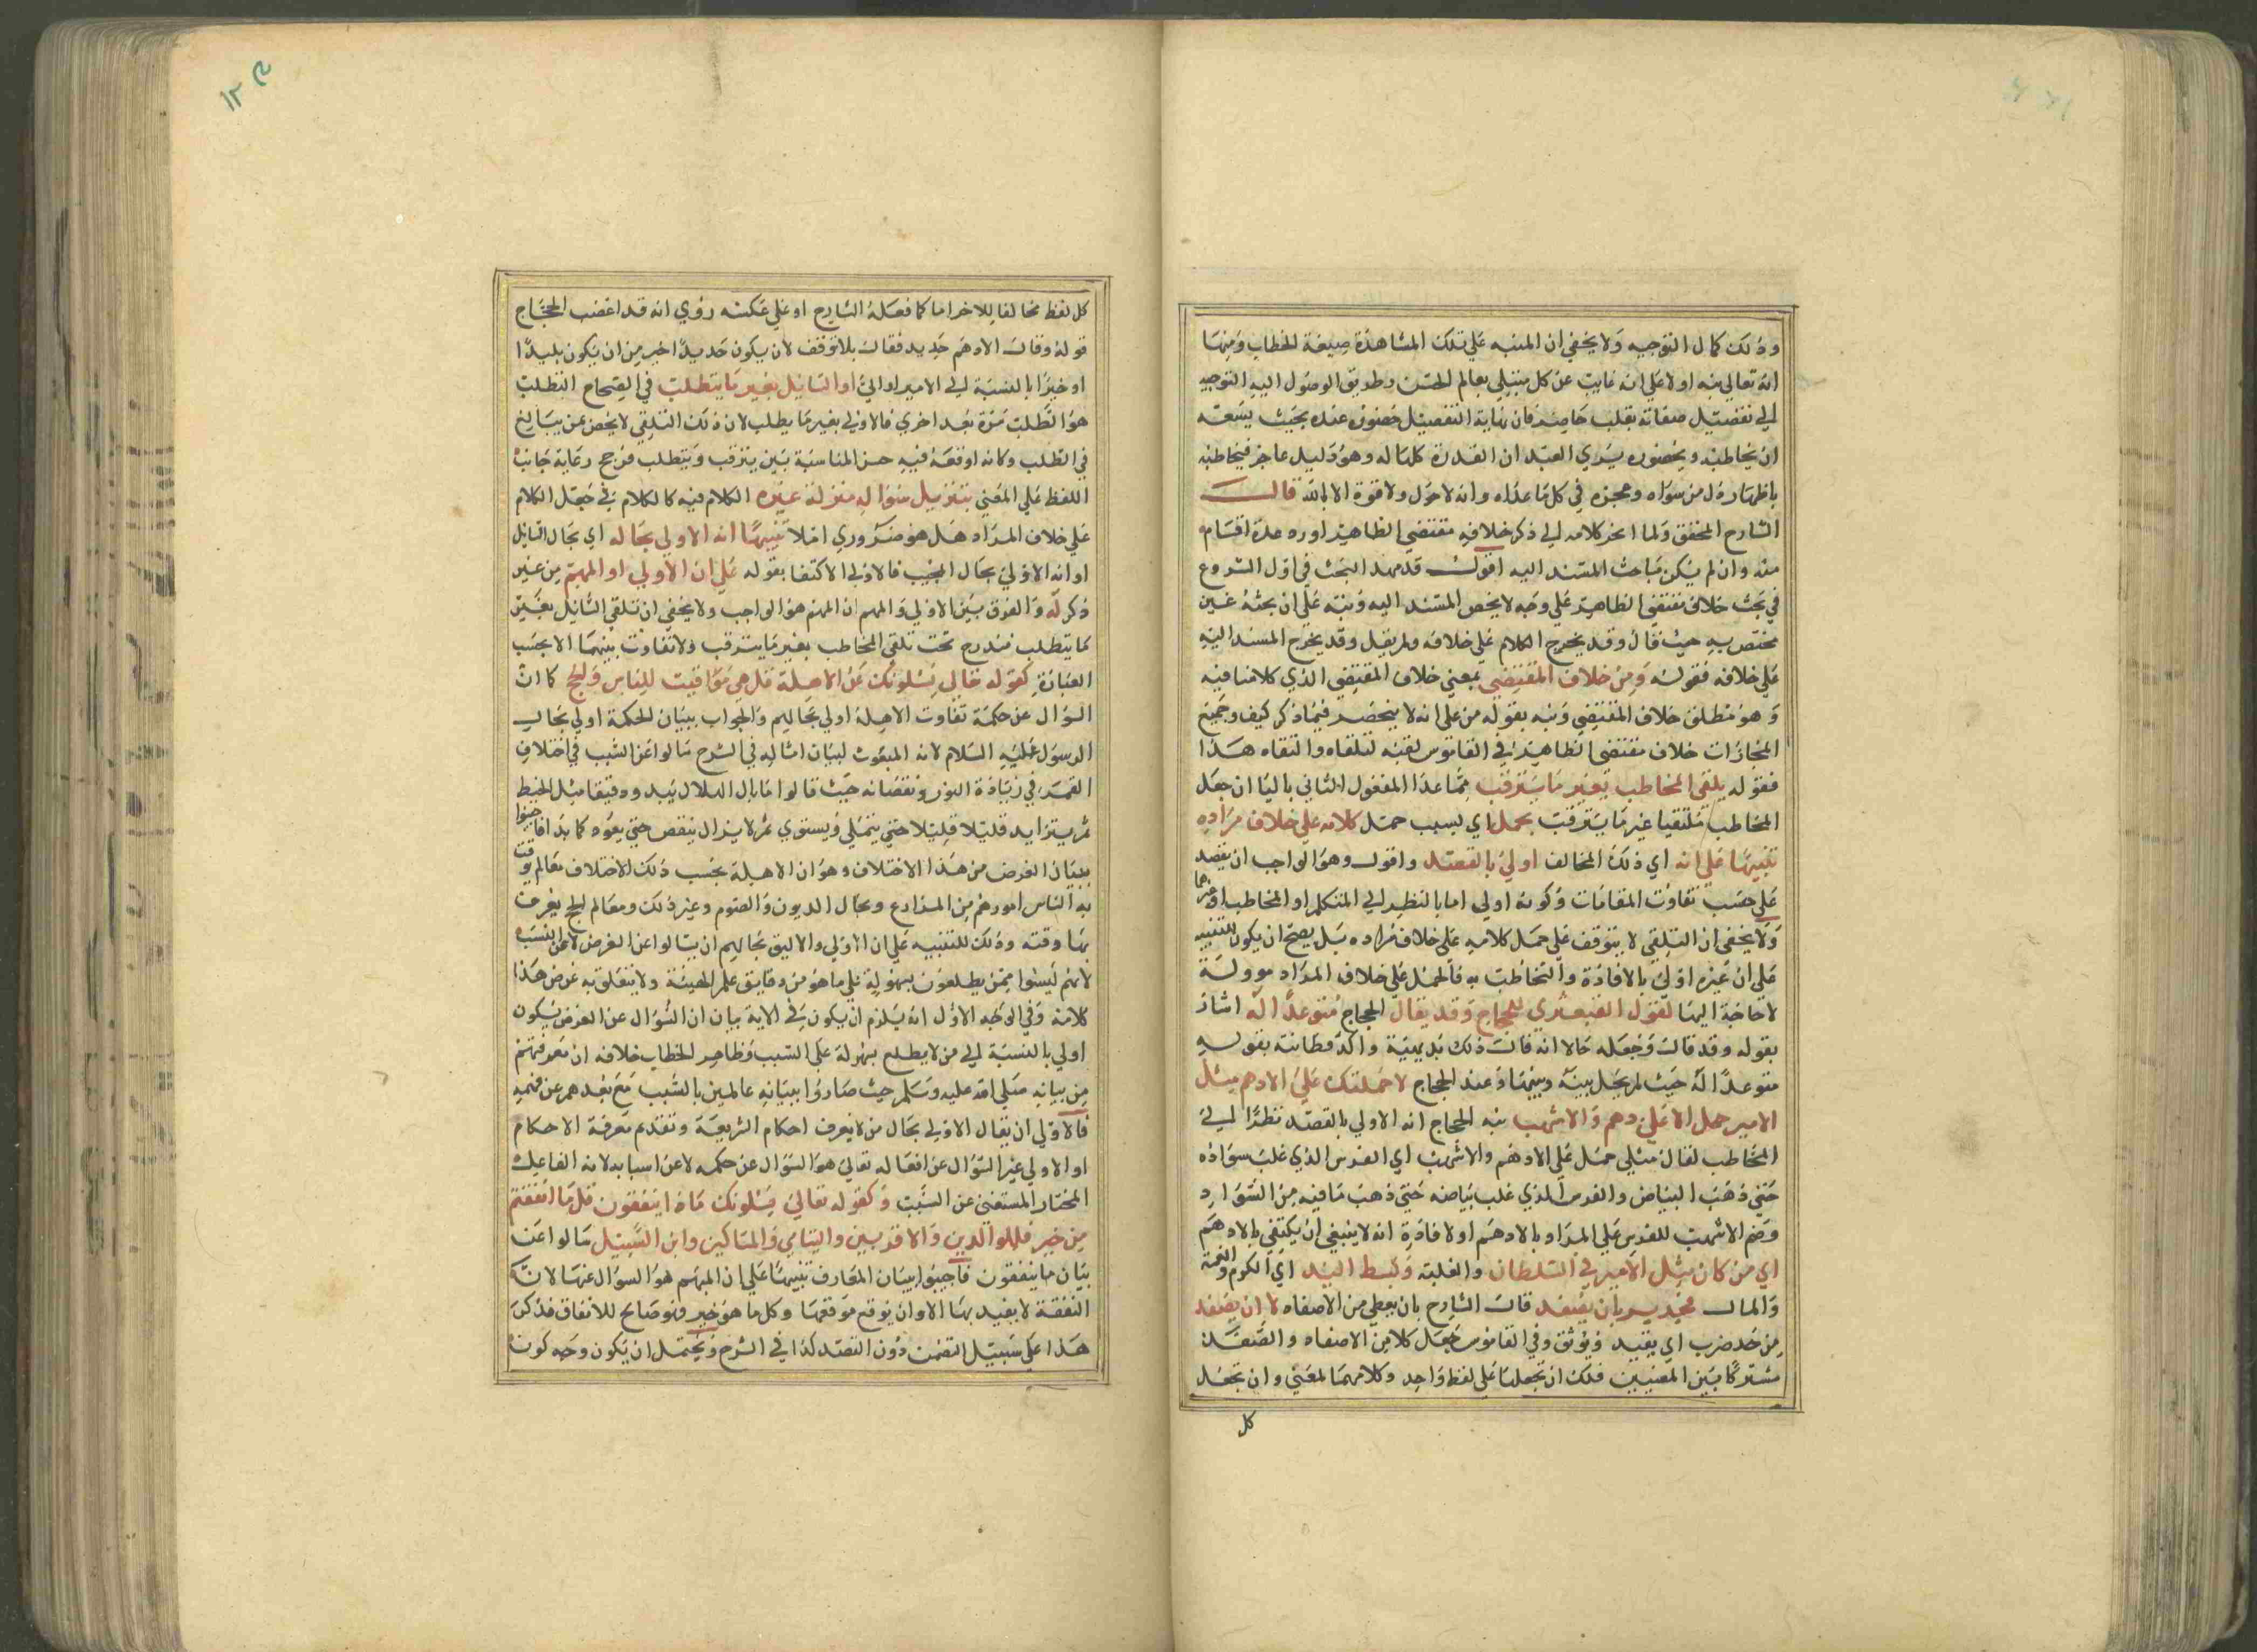 وذلك كمال التوجيه ولا يخفى ان المنبه على تلك المشاهدة صيغة الخطاب ومنها
انه تعالى نبه اولا على انه غايب عن كل مبتلى بعالم الحس وطريق الوصول اليه التوجيه
الى تفصيل صفاته بقلب حاضر فان نهاية التفصيل حضوره عنده بحيث يسعه
ان يخاطبه وبحضوره يرى العبد ان القدرة كلها له وهو ذليل عاجز فيخاطبه
باظهار ذل من سواه وعجزه في كل ما عداه وانه لا حول ولا قوة الا بالله قال
الشارح المحقق ولما انجر كلامه الى ذكر خلاف مقتضى الظاهر اورد عدة اقسام
منه وان لم يكن مباحث المسند اليه اقول قد مهد البحث في اول الشروع
في بحث خلاف مقتضى الظاهر على وجه لا يخص المسند اليه ونبه على ان بحثه غير
مختص به حيث قال وقد يخرج الكلام على خلافه ولم يقل وقد يخرج المسند اليه
على خلافه فقوله ومن خلاف المقتضى بمعنى خلاف المقتضى الذي كلامنا فيه
وهو مطلق خلاف المقتضى ونبه بقوله من على انه لا ينحصر فيما ذكر كيف وجميع
المجازات خلاف مقتضى الظاهر في القاموس لقيه لتلقاه والتقاه هذا
فقوله يلقى المخاطب بغير ما يترقب مما عدا المفعول الثاني بالبا ان جعل
المخاطب متلقيا غير ما يترقب بحمل اي بسبب حمل كلامه على خلاف مراده
تنبيها على انه اي ذلك المخالف اولى بالقصد واقول وهو الواجب ان يقصد
على حسب تفاوت المقامات وكونه اولى اما بالنظر الى المتكلم او المخاطب او غيرهما
ولا يخفى ان التلقي لا يتوقف على حمل كلامه على خلاف مراده بل يصح ان يكون للتنبيه
على ان غيره اولى بالافادة والتخاطب به فالحمل على خلاف المراد موولة
لا حاجة اليها لقول القبعثرى للحجاج وقد يقال الحجاج متوعدا اله اشار
بقوله وقد قال وجعله حالا انه قال ذلك بديهية واكد فطانته بقوله
متوعدا اله حيث لم يجل بينه وبينها ذ عند الحجاج لاحملنك على الادهم مثل
الامير حمل الا على دهم والاشهب نبه الحجاج انه الاولى بالقصد نظرا الى
المخاطب لقال مثلي حمل على الادهم والاشهب اي الفرس الذي غلب سواده
حتى ذهب البياض والفرس الذي غلب بياضه حتى ذهب ما فيه من السواد
وضم الاشهب للفرس على المراد بالادهم او لافادة انه لا ينبغي ان يكتفي بالادهم
اي من كان مثل الامير في السلطان والغلبة وبسط اليد اي الكرم والنعمة
والمال فجدير بان يصفد قال الشارح بان يعطي من الاصفاد لا ان يصفد
من حد ضرب اي يقيد ويوثق وفي القاموس جعل كلا من الاصفاد والصفد
مشتركا بين المعنيين فلك ان تجعلها على لفظ واحد وكلا منهما لمعنى وان تجعل
كل
١٢٣
كل لفظ مخالفا للاخر اما كما فعله الشارح او على عكسه روي انه قد اغضب الحجاج
قوله وقال الادهم حديد فقال بلا توقف لان يكون حديدا خير من ان يكون بليدا
او خيرا بالنسبة الى الامير اوالي او السائل بغير ما يتطلب في الصحاح التطلب
هو الطلب مرة بعد اخرى فالاولى بغير ما يطلب لان ذلك التلقي لا يخص بمن يبالغ
في الطلب وكانه اوقعه فيه حسن المناسبة بين يترقب ويتطلب فرجح رعاية جانب
اللفظ على المعنى بتنزيل سؤاله منزلة غيره الكلام فيه كالكلام في جعل الكلام
على خلاف المراد هل هو ضروري ام لا تنبيها انه الاولى بحاله اي بحال السائل
او انه الاولى بحال المجيب فالاولى الاكتفا بقوله على ان الاولى او المهم من غير
ذكر له والفرق بين الاولى والمهم ان المهم هو الواجب ولا يخفى ان تلقي السائل بغير
ما يتطلب مندرج تحت تلقي المخاطب بغير ما يترقب ولا تفاوت بينهما الا بحسب
العبارة كقوله تعالى يسئلونك عن الاهلة قل هي مواقيت للناس والحج كان
السؤال عن حكمة تفاوت الاهلة اولى بحالهم والجواب ببيان الحكمة اولى بحال
الرسول عليه السلام لانه المبعوث لبيان امثاله في الشرح سالوا عن السبب في اختلاف
القمر في زيادة النور ونقصانه حيث قالوا ما بال الهلال يبدو دقيقا مثل الخيط
ثم يتزايد قليلا قليلا حتى يتملى ويستوي ثم لا يزال ينقص حتى يعود كما بدا فاجيبوا
ببيان الغرض من هذا الاختلاف وهو ان الاهلة بحسب ذلك الاختلاف معالم يوقت
به الناس امورهم من المزارع ومحال الديون والصوم وغير ذلك ومعالم الحج يعرف
بها وقته وذلك للتنبيه على ان الاولى والاليق بحالهم ان يسالوا عن الغرض لا عن السبب
لانهم ليسوا ممن يطلعون بسهولة على ما هو من دقايق علم الهيئة ولا يتعلق به غرض هذا
كلامه وفي الوجه الاول انه يلزم ان يكون في الاية بيان ان السؤال عن الغرض يكون
اولى بالنسبة الى من لا يطلع بسهولة على السبب وظاهر الخطاب خلافه ان معرفتهم
من بيانه صلى الله عليه وسلم حيث صاروا ببيانه عالمين بالسبب مع بعدهم عن فهمه
فالاولى ان يقال الاولى بحال من لا يعرف احكام الشريعة وتقدم معرفة الاحكام
او الاولى غير السؤال عن افعاله تعالى هو السؤال عن حكمه لا عن اسبابه لانه الفاعل
المختار المستغنى عن السبب وكقوله تعالى يسئلونك ماذا ينفقون قل ما انفقتم
من خير فللوالدين والاقربين واليتامى والمساكين وابن السبيل سالوا عن
بيان ما ينفقون فاجيبوا ببيان المصارف تنبيها على ان المهم هو السؤال عنها لان
النفقة لا يعتد بها الا وان يوقع موقعها وكل ما هو خير فهو صالح للانفاق فذكر
هذا على سبيل التضمن دون القصد كذا في الشرح ويحتمل ان يكون وجه كون